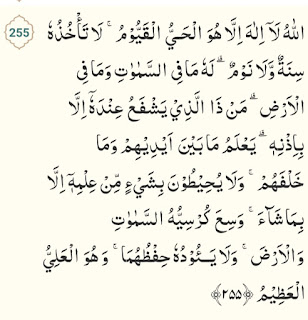 255
اللهُ لَآ اِلٰهَ اِلَّا هُوَ الْحَيُّ الْقَيُّوْمُ ۚ لَا تَأْخُذُهٗ
سِنَةٌ وَّلَا نَوْمٌ ۗ لَهٗ مَا فِى السَّمٰوٰتِ وَمَا فِى
الْاَرْضِ ۗ مَنْ ذَا الَّذِيْ يَشْفَعُ عِنْدَهٗٓ اِلَّا
بِاِذْنِهٖ ۗ يَعْلَمُ مَا بَيْنَ اَيْدِيْهِمْ وَمَا
خَلْفَهُمْ ۚ وَلَا يُحِيْطُوْنَ بِشَيْءٍ مِّنْ عِلْمِهٖٓ اِلَّا
بِمَا شَاۤءَ ۚ وَسِعَ كُرْسِيُّهُ السَّمٰوٰتِ
وَالْاَرْضَ ۚ وَلَا يَـُٔوْدُهٗ حِفْظُهُمَا ۚ وَهُوَ الْعَلِيُّ
الْعَظِيْمُ ﴿٢٥٥﴾